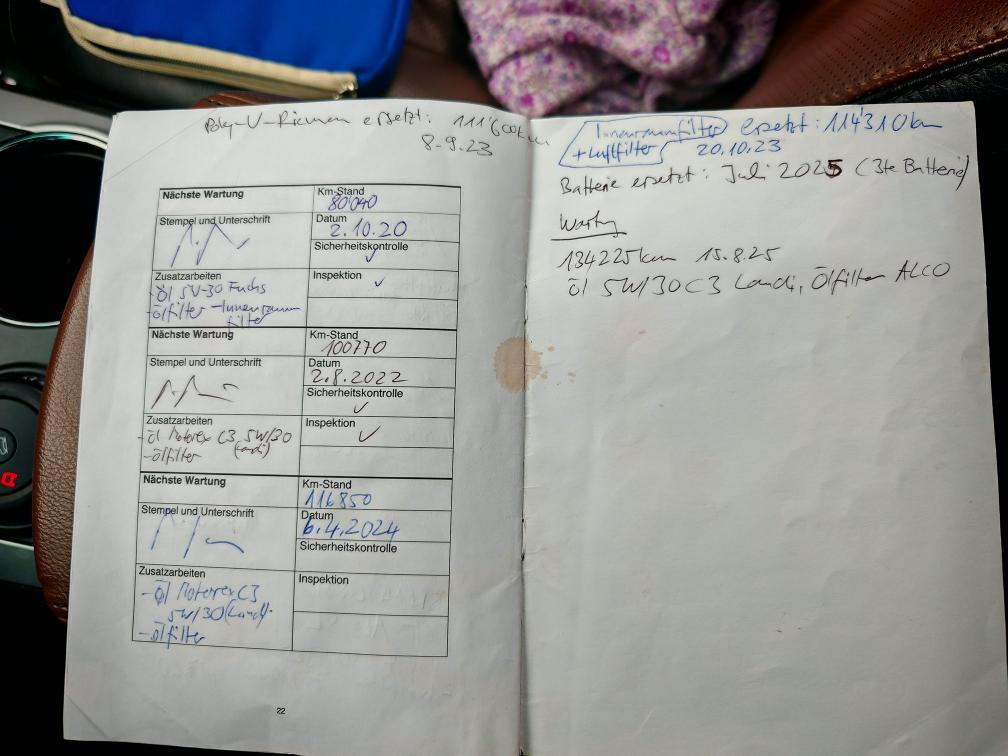 Poly-V-Riemen ersetzt: 111'600km
8-9.23
Nächste Wartung
Km-Stand
80'040
Stempel und Unterschrift
Datum
2.10.20
Sicherheitskontrolle
✓
Zusatzarbeiten
Inspektion
✓
- Öl 5W-30 Fuchs
- Ölfilter - Innenraum
filter
Nächste Wartung
Km-Stand
100770
Stempel und Unterschrift
Datum
2.8.2022
Sicherheitskontrolle
✓
Zusatzarbeiten
Inspektion
✓
- Öl Motorex C3 5W/30
(Landi)
- Ölfilter
Nächste Wartung
Km-Stand
116850
Stempel und Unterschrift
Datum
6.4.2024
Sicherheitskontrolle
Zusatzarbeiten
Inspektion
- Öl Motorex C3
5W/30 (Landi)
- Ölfilter
22
Innenraumfilter ersetzt: 114'310km
+ Luftfilter 20.10.23
Batterie ersetzt: Juli 2025 (3te Batterie)
134225km 15.8.25
Öl 5W/30 C3 Landi, Ölfilter ALCO